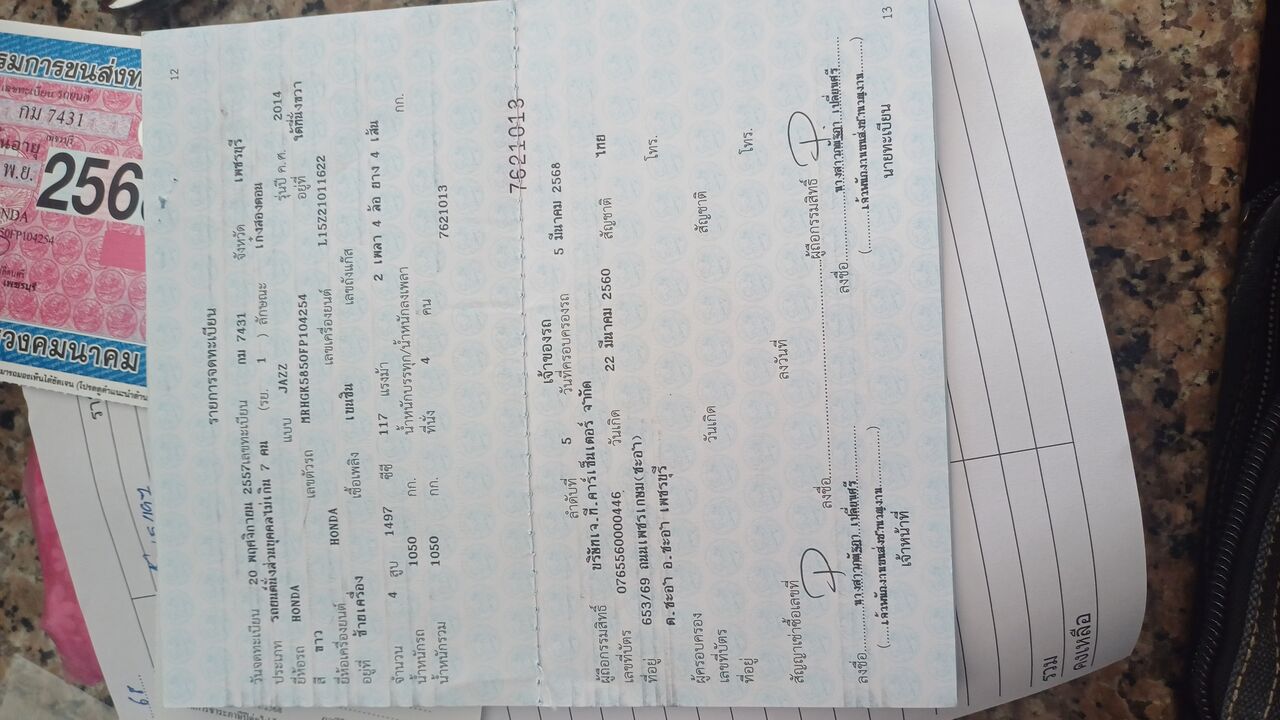 12
รายการจดทะเบียน
วันจดทะเบียน 20 พฤศจิกายน 2557 เลขทะเบียน กม 7431 จังหวัด เพชรบุรี
ประเภท รถยนต์นั่งส่วนบุคคลไม่เกิน 7 คน (รย. 1 ) ลักษณะ เก๋งสองตอน
ยี่ห้อรถ HONDA แบบ JAZZ รุ่นปี ค.ศ. 2014
สี ขาว เลขตัวรถ MRHGK5850FP104254 อยู่ที่ ใต้ที่นั่งขวา
ยี่ห้อเครื่องยนต์ HONDA เลขเครื่องยนต์ L15Z21011622
อยู่ที่ ซ้ายเครื่อง เชื้อเพลิง เบนซิน เลขถังแก๊ส
จำนวน 4 สูบ 1497 ซีซี 117 แรงม้า 2 เพลา 4 ล้อ ยาง 4 เส้น
น้ำหนักรถ 1050 กก. น้ำหนักบรรทุก/น้ำหนักลงเพลา กก.
น้ำหนักรวม 1050 กก. ที่นั่ง 4 คน 7621013
7621013
เจ้าของรถ
ลำดับที่ 5 วันที่ครอบครองรถ 5 มีนาคม 2568
ผู้ถือกรรมสิทธิ์ บริษัทเจ.ที.คาร์เซ็นเตอร์ จำกัด
เลขที่บัตร 0765560000446 วันเกิด 22 มีนาคม 2560 สัญชาติ ไทย
ที่อยู่ 653/69 ถนนเพชรเกษม(ชะอำ) โทร.
ต.ชะอำ อ.ชะอำ เพชรบุรี
ผู้ครอบครอง
เลขที่บัตร วันเกิด สัญชาติ
ที่อยู่ โทร.
สัญญาเช่าซื้อเลขที่ ลงวันที่
ลงชื่อ ผู้ถือกรรมสิทธิ์
ลงชื่อ ลงชื่อ
(เจ้าพนักงานขนส่งชำนาญงาน) (เจ้าพนักงานขนส่งชำนาญงาน)
เจ้าหน้าที่ นายทะเบียน
13
รมการขนส่งท
เลขทะเบียน รถยนต์
กม 7431
เพชรบุรี
นอายุ
พ.ย.
256
NDA
50FP104254
เพชรบุรี
วงคมนาคม
รวม
คงเหลือ